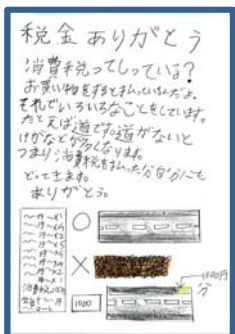 税金ありがとう
消費税ってしっている?
お買い物をすると払っているんだよ。
それでいろいろなことをしています。
たとえば道です。道がないと
けがなどが多くなります。
つまり消費税を払った分自分にも
どってきます。
ありがとう。
1000円
分
1000